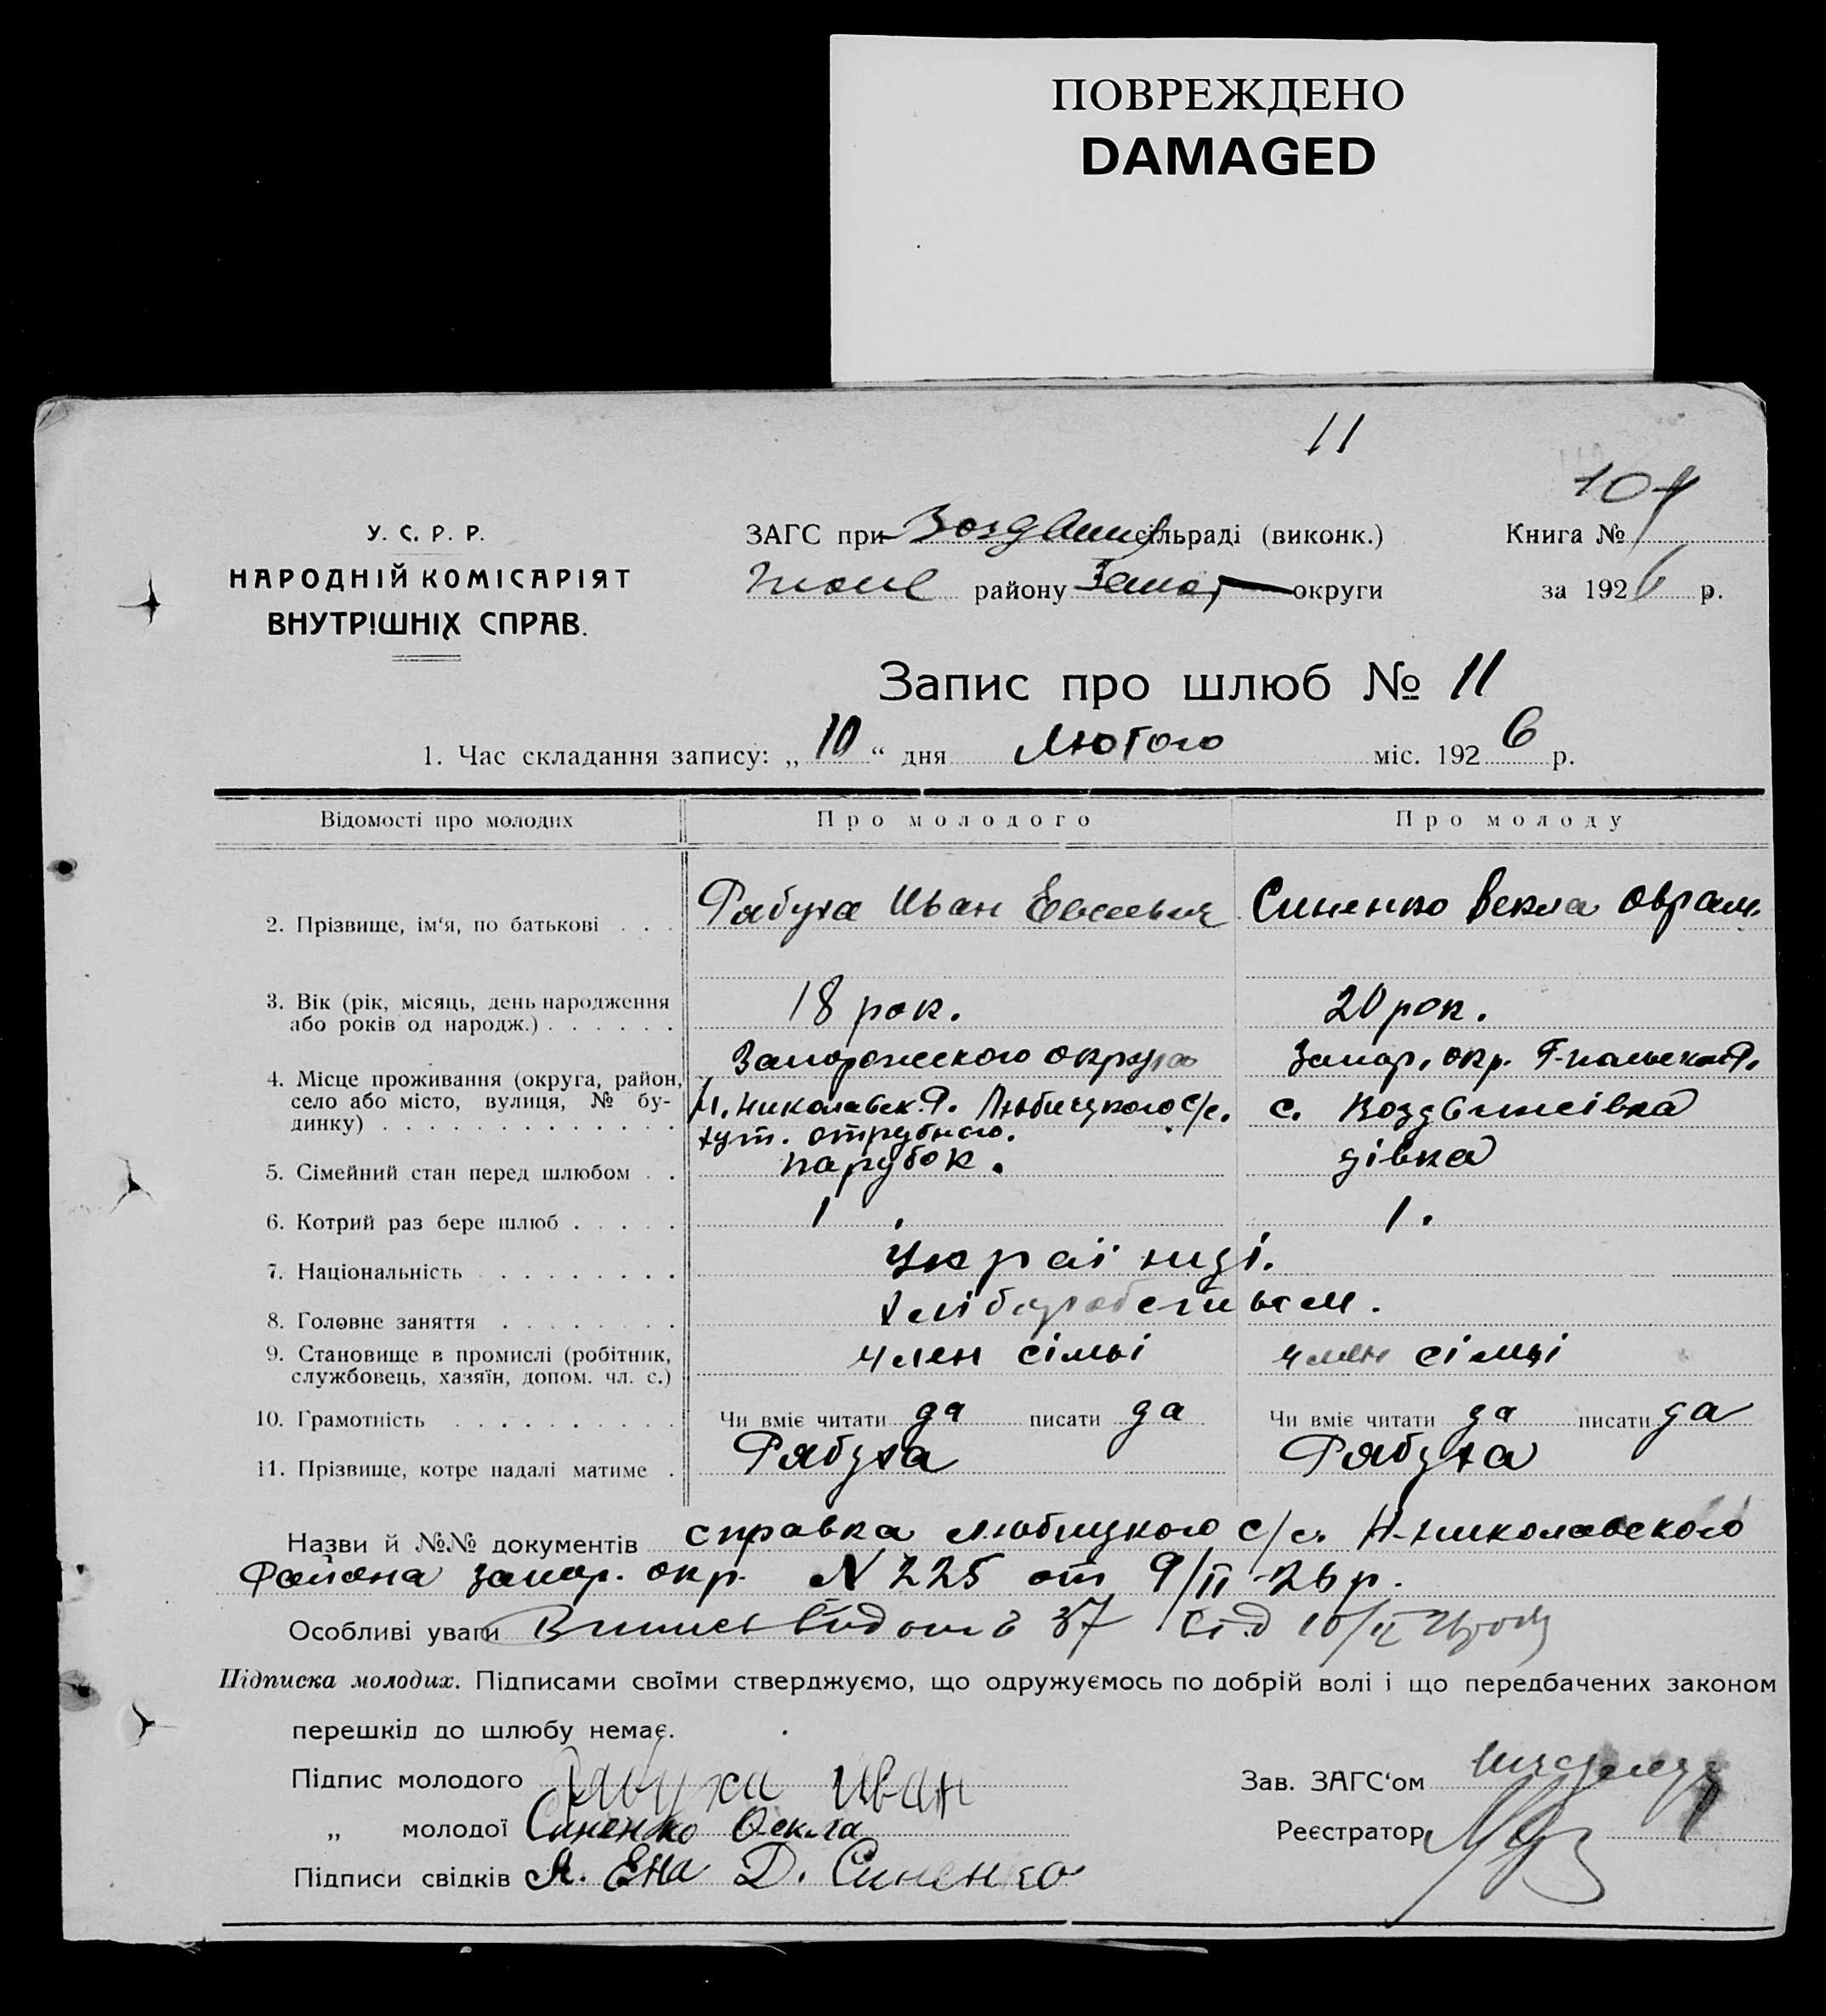 ПОВРЕЖДЕНО
DAMAGED
11
104
У. С. Р. Р.
НАРОДНІЙ КОМІСАРІЯТ
ВНУТРІШНІХ СПРАВ.
ЗАГС при сільраді (виконк.) Книга №
району Запор округи за 1926 р.
Запис про шлюб № 11
1. Час складання запису: „10“ дня Лютого міс. 1926 р.
Відомості про молодих Про молодого Про молоду
2. Прізвище, ім‘я, по батькові . . . Рябуха Иван Евсеевич Синенко Векла Оврам.
3. Вік (рік, місяць, день народження
або років од народж.) . . . . . . 18 рок. 20 рок.
Запорожского округа Запор. окр. Г-польск. Р.
4. Місце проживання (округа, район,
село або місто, вулиця, № бу- Н. Николаевск. Р. Любицкого с/с. с. Воздвижівка
динку) . . . . . . . . . . . . . хут. отрубного.
5. Сімейний стан перед шлюбом . . парубок. дівка
6. Котрий раз бере шлюб . . . . . 1. 1.
7. Національність . . . . . . . . Українці.
8. Головне заняття . . . . . . . . хліборобством.
9. Становище в промислі (робітник, член сімьі член сімьі
службовець, хазяїн, допом. чл. с.)
10. Грамотність . . . . . . . . . . Чи вміє читати да писати да Чи вміє читати да писати да
11. Прізвище, котре надалі матиме . Рябуха Рябуха
Назви й №№ документів справка Любицкого с/с. Н-николаевского
Района запор. окр. N 225 от 9/II-26 р.
Особливі уваги 37 від 10/II
Підписка молодих. Підписами своїми стверджуємо, що одружуємось по добрій волі і що передбачених законом
перешкід до шлюбу немає.
Підпис молодого Рябуха Иван Зав. ЗАГС‘ом
„ молодої Синенко Векла Реєстратор
Підписи свідків Я. Ена Д. Синенко